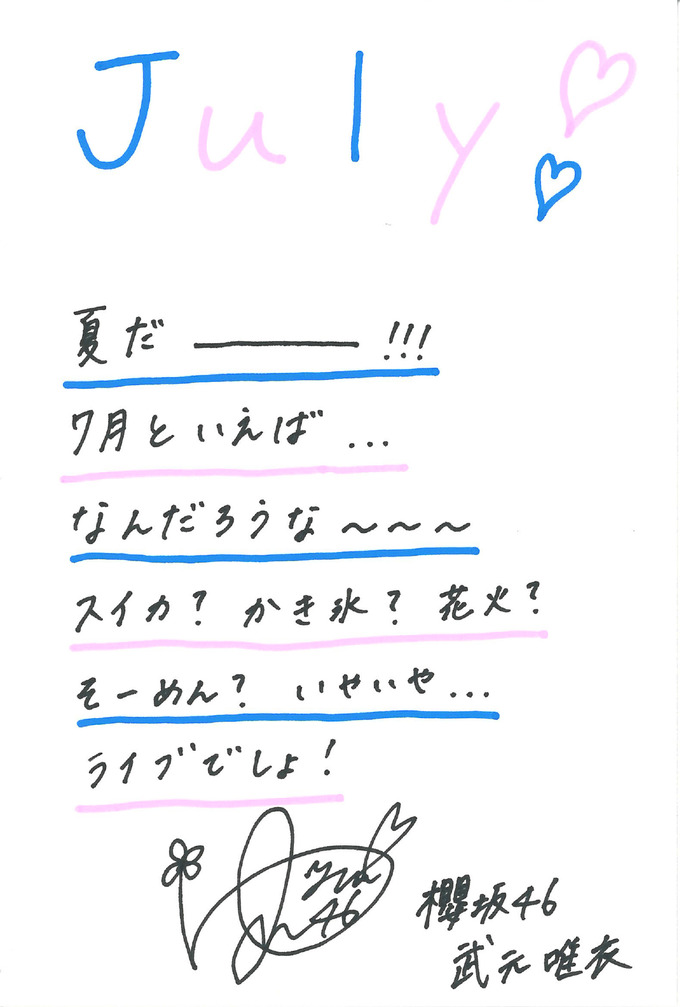 July
夏だ――――!!!
7月といえば...
なんだろうな～～～
スイカ？ かき氷？ 花火？
そーめん？ いやいや...
ライブでしょ！
櫻坂46
武元唯衣